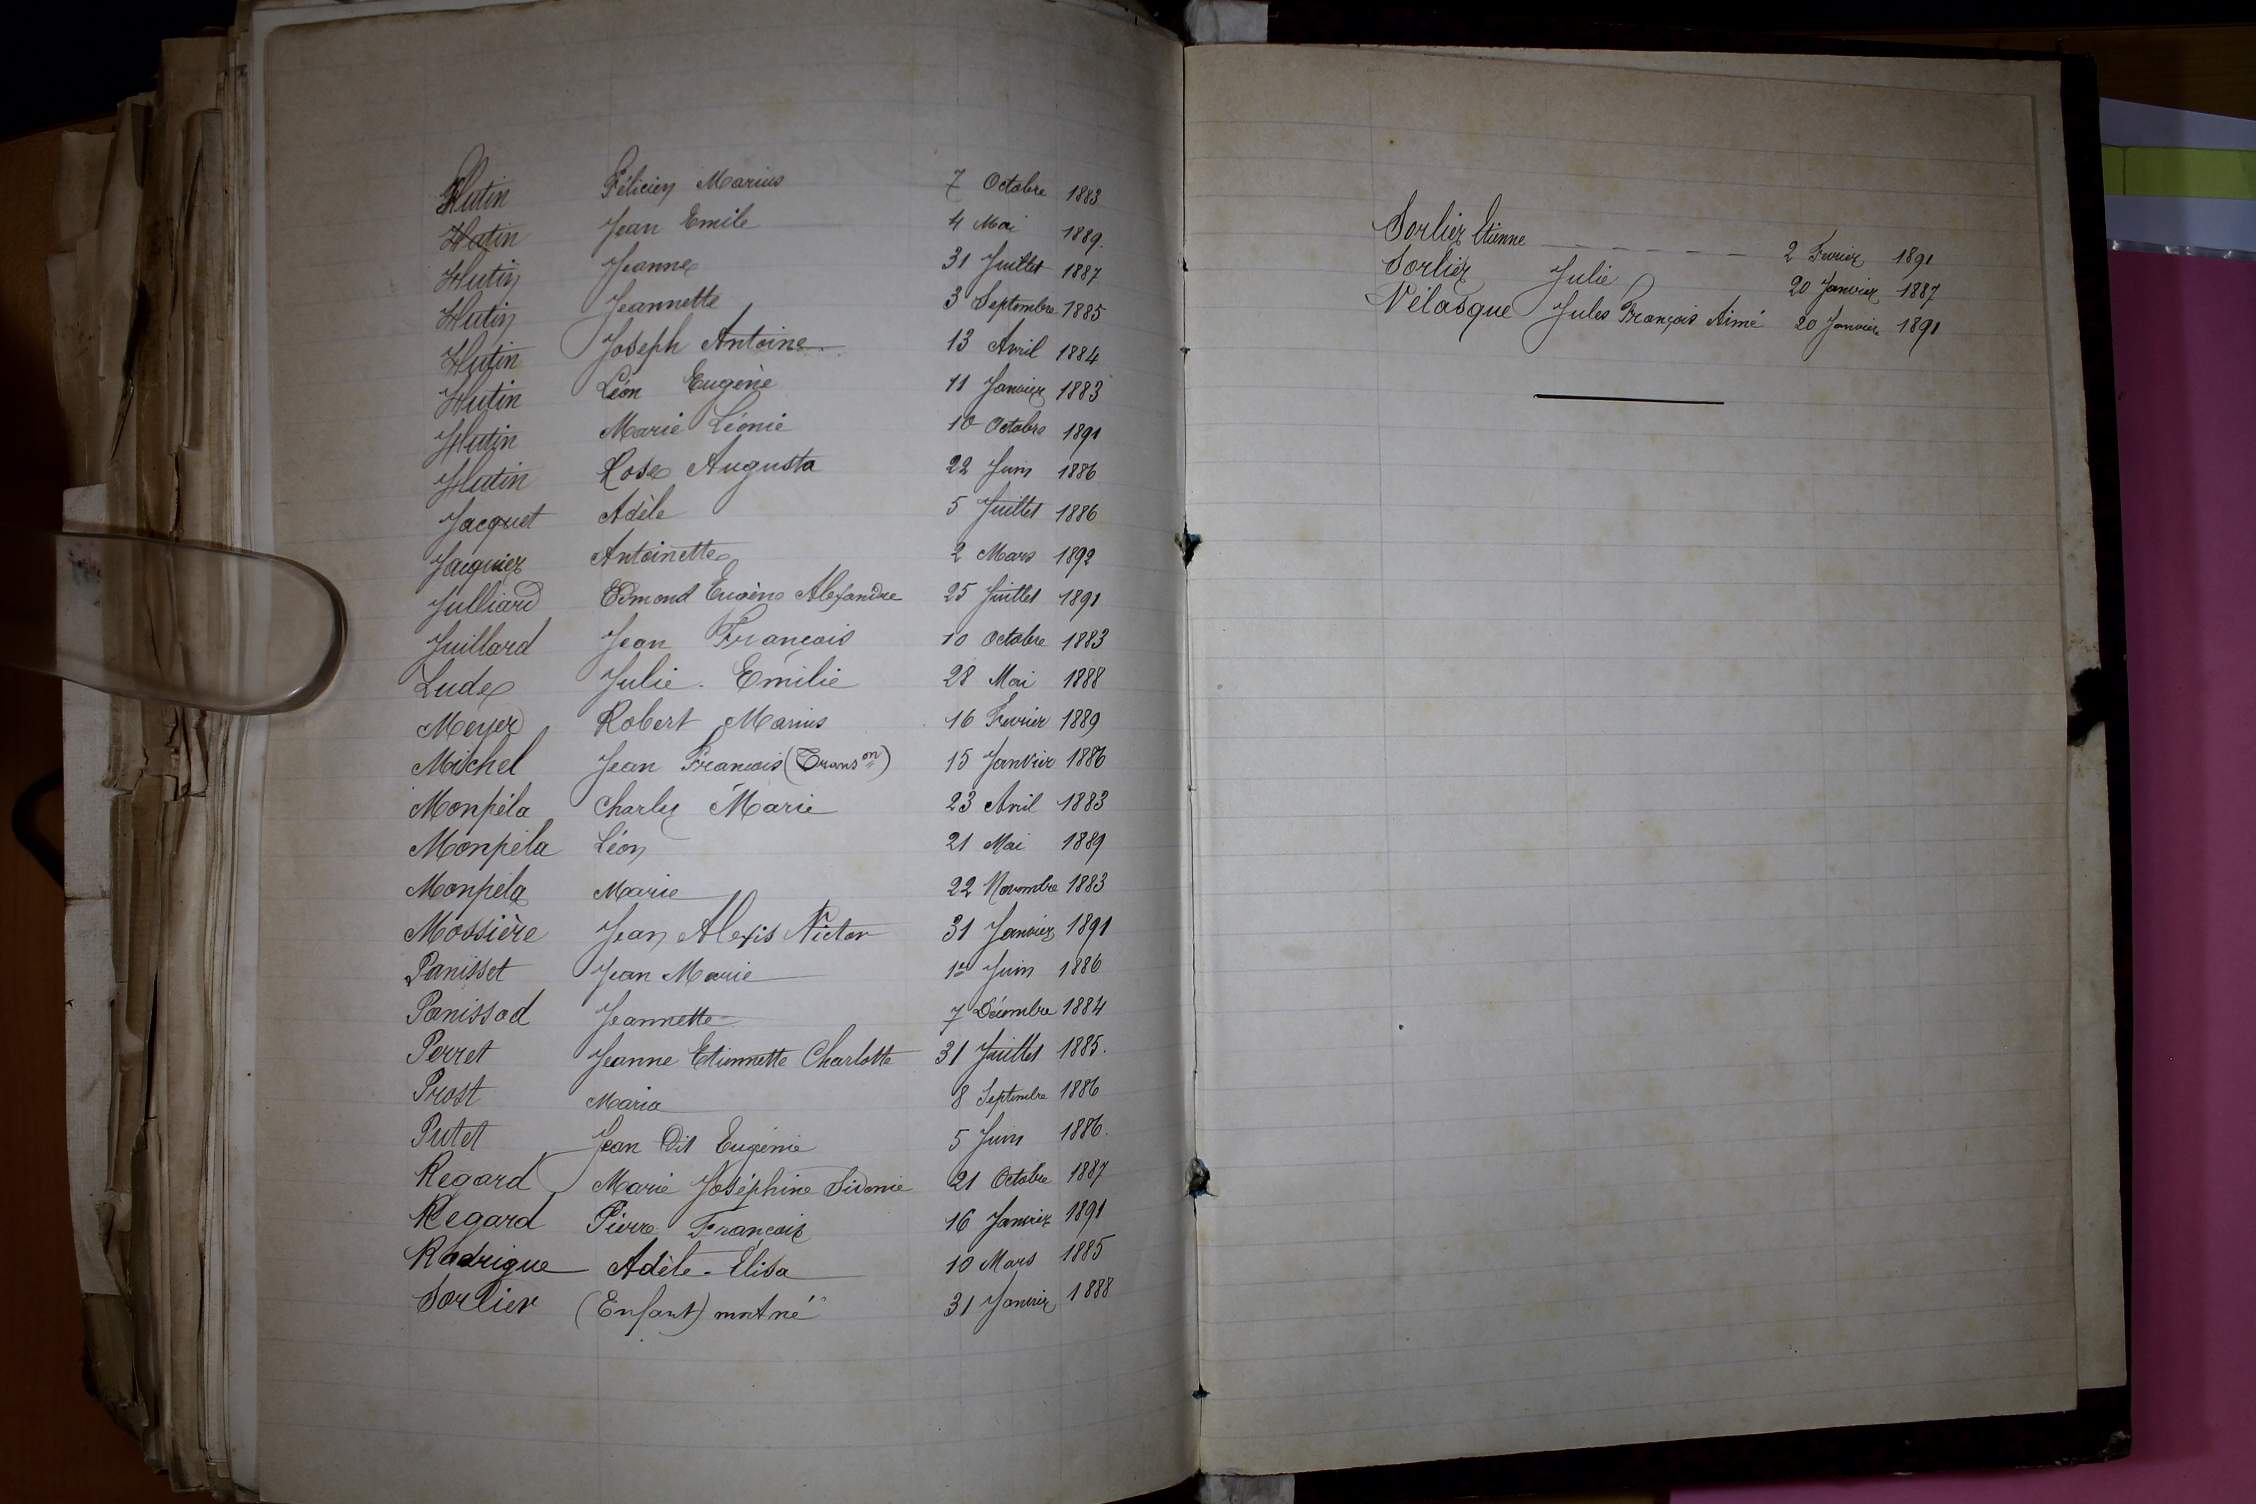 Hutin Félicien Marius 7 Octobre 1883
Hutin Jean Emile 4 Mai 1889.
Hutin Jeanne 31 Juillet 1887
Hutin Jeannette 3 Septembre 1885
Hutin Joseph Antoine 13 Avril 1884
Hutin Léon Eugène 11 Janvier 1883
Hutin Marie Léonie 10 Octobre 1891
Hutin Rose Augusta 22 Juin 1886
Jacquet Adèle 5 Juillet 1886
Jacquier Antoinette 2 Mars 1892
Julliard Edmond Eugène Alexandre 25 Juillet 1891
Juillard Jean François 10 Octobre 1883
Lude Julie Emilie 28 Mai 1888
Meyer Robert Marius 16 Fevrier 1889
Michel Jean Francois (Trans on) 15 Janvier 1886
Monpéla Charly Marie 23 Avril 1883
Monpéla Léon 21 Mai 1889
Monpéla Marie 22 Novembre 1883
Mossière Jean Alexis Victor 31 Janvier 1891
Panisset Jean Marie 1er Juin 1886
Panissod Jeannette 7 Décembre 1884
Perret Jeanne Etiennette Charlotte 31 Juillet 1885.
Prost Maria 8 Septembre 1886
Putet Jean dit Eugénie 5 Juin 1886.
Regard Marie Joséphine Sidonie 21 Octobre 1887
Regard Pierre François 16 Janvier 1891
Rodrigue Adèle-Elisa 10 Mars 1885
Sorlier (Enfant) mort né 31 Janvier 1888
Sorlier Etienne 2 Fevrier 1891
Sorlier Julie 20 Janvier 1887
Vélasque Jules François Aimé 20 Janvier 1891